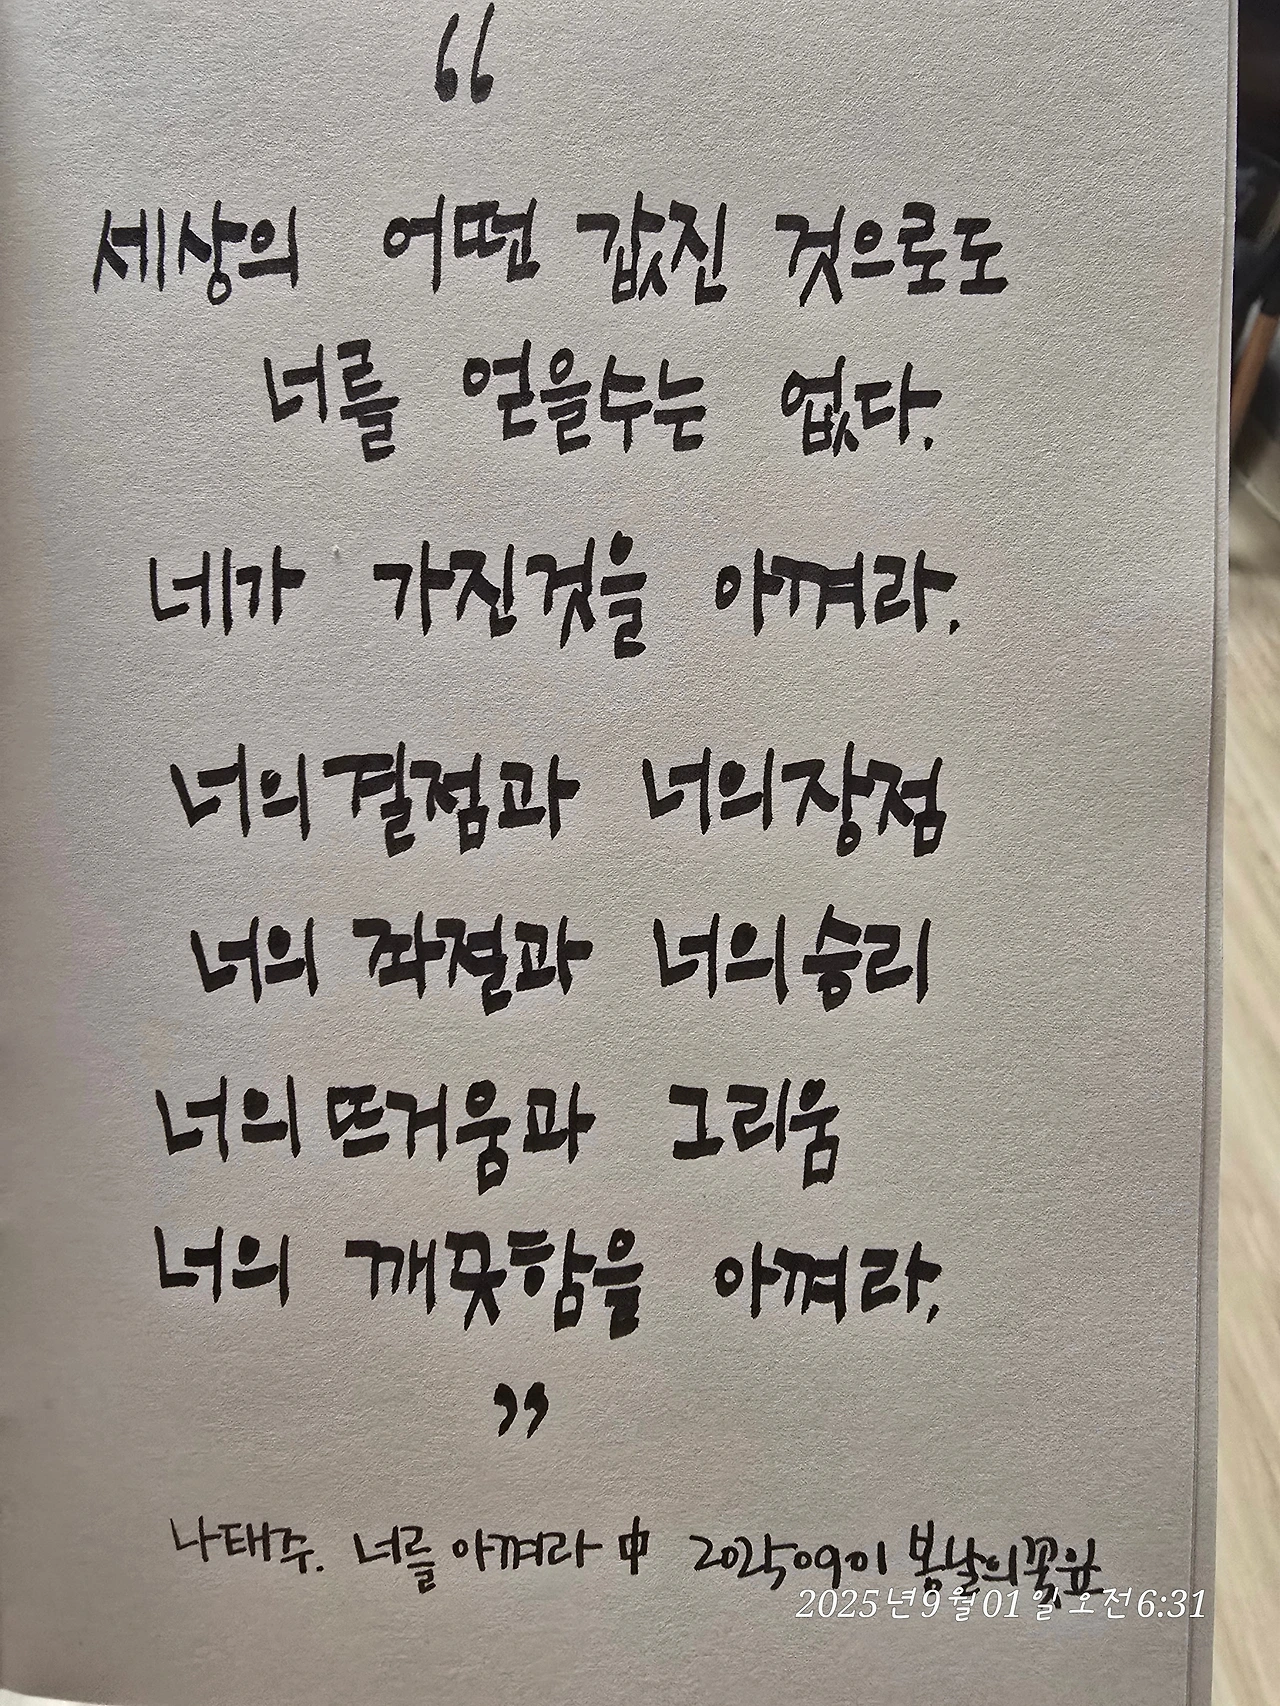 “
세상의 어떤 값진 것으로도
너를 얻을수는 없다.
네가 가진것을 아껴라.
너의 결점과 너의 장점
너의 좌절과 너의 승리
너의 뜨거움과 그리움
너의 깨끗함을 아껴라.
”
나태주. 너를 아껴라 中 20250901 봄날의꽃잎
2025년9월01일 오전6:31